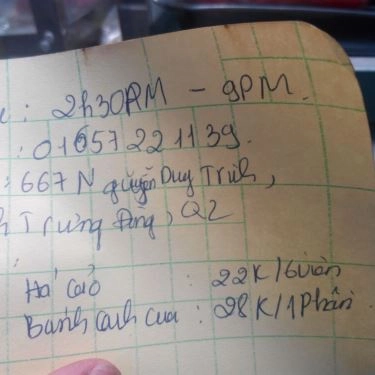 : 2h30PM - 9PM.
: 01657221139.
: 667 Nguyễn Duy Trinh,
h Trưng Đông, Q2
:
Há Cảo : 22K/6 viên
Bánh Canh cua : 28K/1 Phần